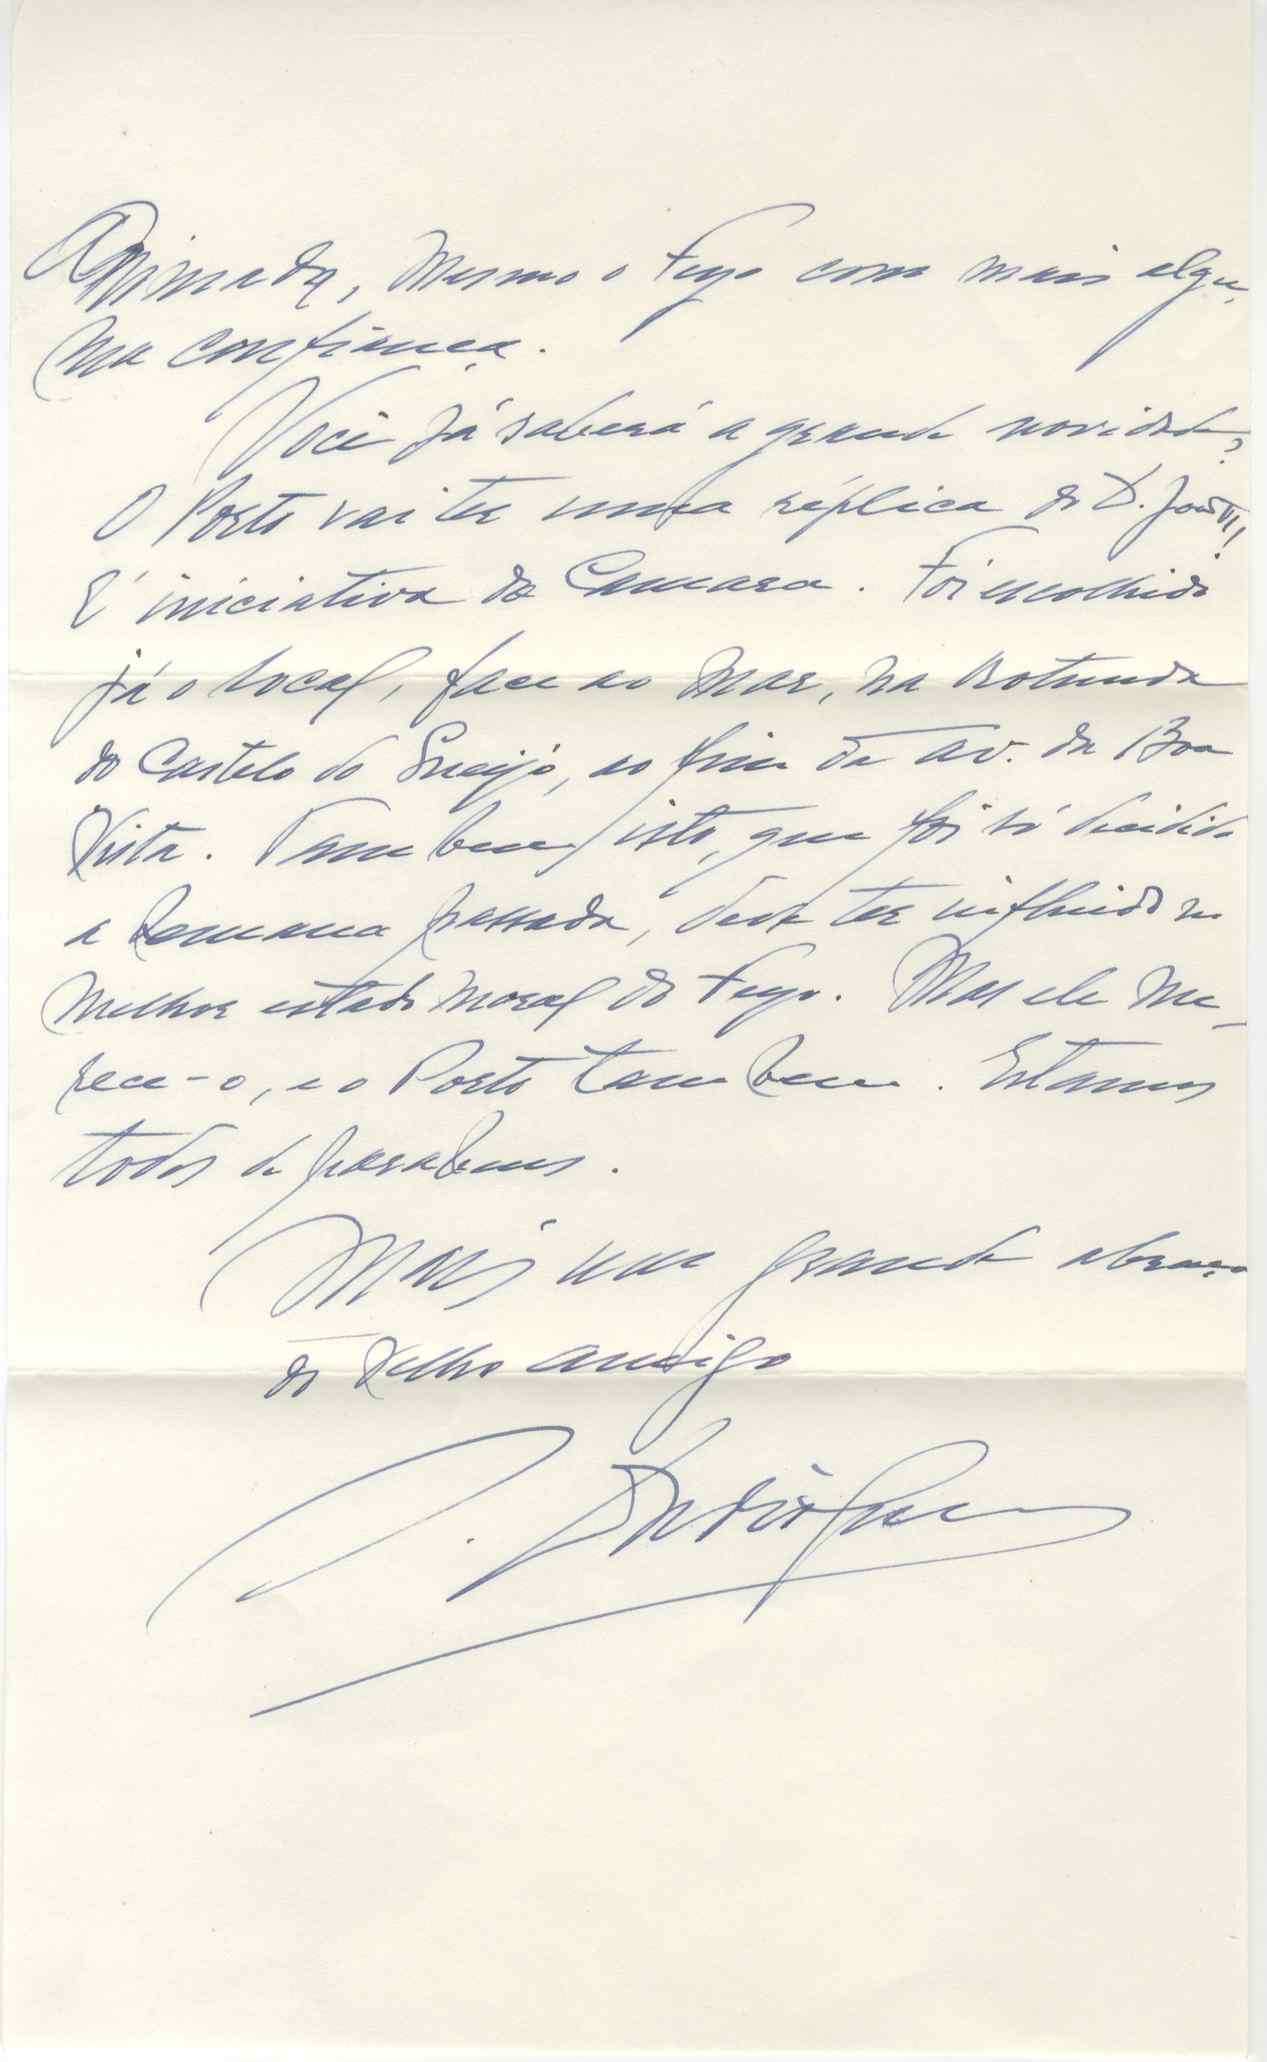 Animada, mesmo o Feyo com mais algu-
ma confiança.
Você já saberá a grande novidade?
O Porto vai ter uma réplica do D. João VI!
É iniciativa da Camara. Foi escolhido
já o local, face ao mar, na rotunda
do Castelo do Queijo, ao fim da Av. da Boa
Vista. Tambem isto, que foi só decidido
a semana passada, deve ter influido no
melhor estado moral do Feyo. Mas ele me-
rece-o, e o Porto tambem. Estamos
todos de parabens.
Mais um grande abraço
do velho amigo